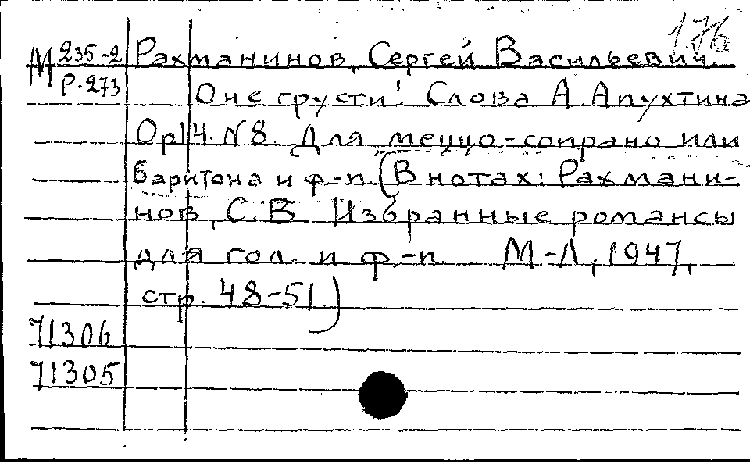 176
М 235-2 Рахманинов, Сергей Васильевич.
Р-273 О не грусти! Слова А. Апухтина
Op 14. N 8. Для меццо-сопрано или
баритона и ф-п. (В нотах: Рахмани-
нов, С. В. Избранные романсы
для гол. и ф.-п. М-Л, 1947,
стр. 48-51.)
71306
71305